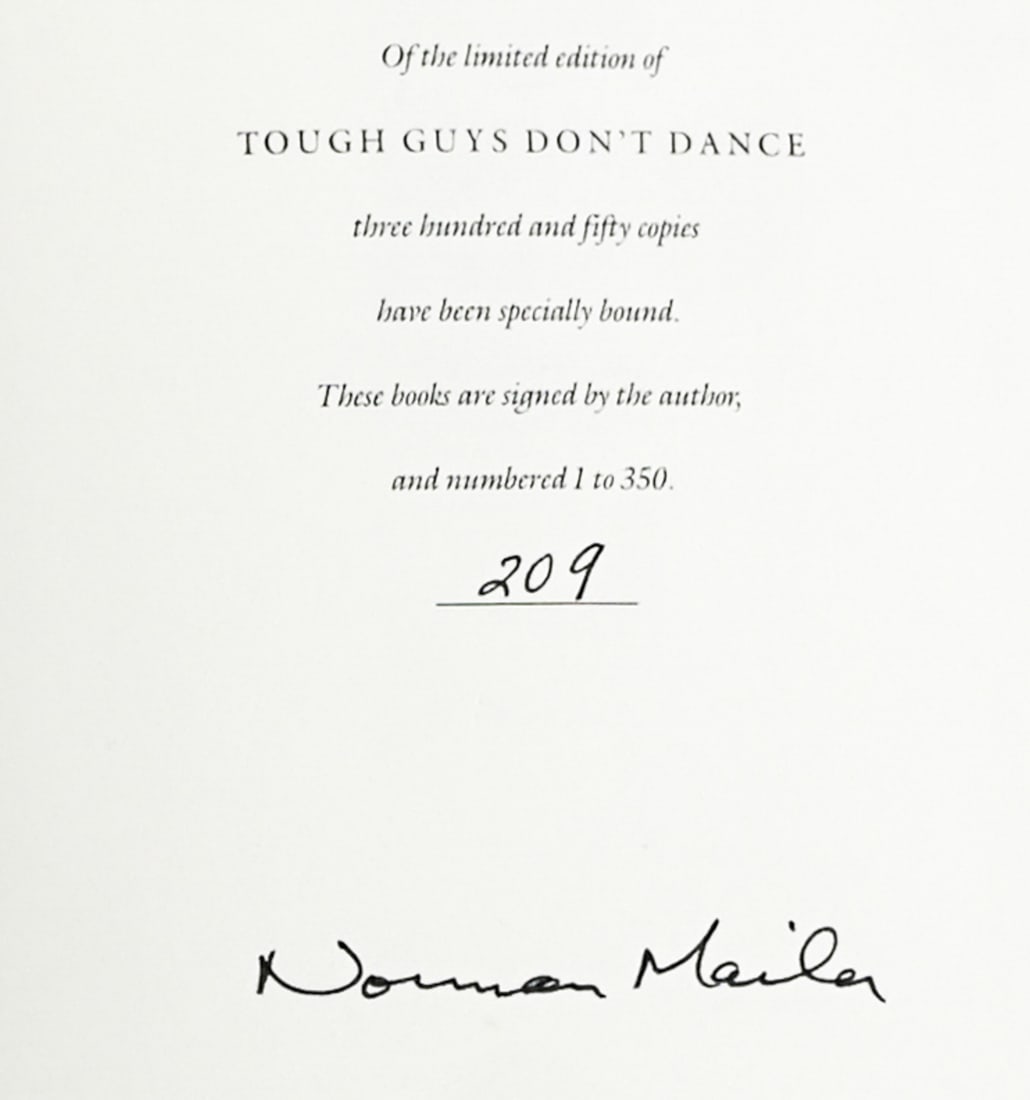 Of the limited edition of
TOUGH GUYS DON'T DANCE
three hundred and fifty copies
have been specially bound.
These books are signed by the author,
and numbered 1 to 350.
209
Norman Mailer